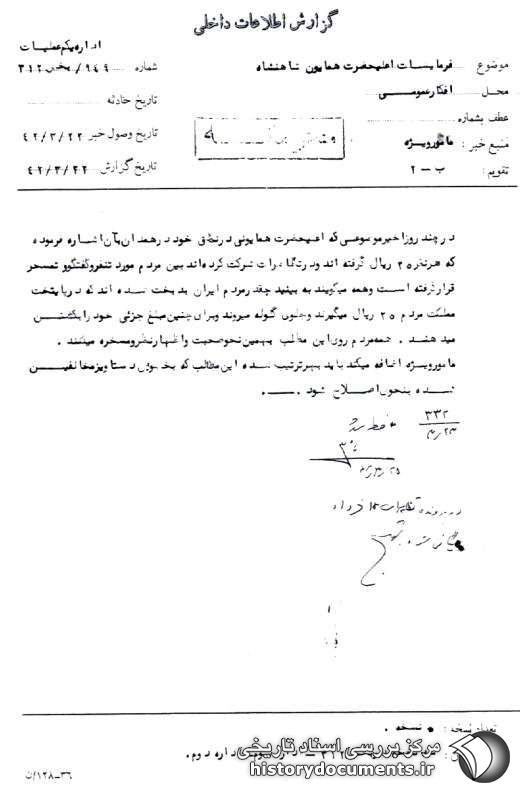 گزارش اطلاعات داخلی
اداره یکم عملیات
موضوع فرمایشات اعلیحضرت همایون شاهنشاه
شماره ۹۴۹ / بخش ۳۱۲
محل افکار عمومی
تاریخ حادثه
عطف بشماره
تاریخ وصول خبر ۴۲/۳/۲۲
منبع خبر : مامور ویژه
تاریخ گزارش ۴۲/۳/۲۲
تقویم : ب – ۲
در چند روز اخیر موضوعی که اعلیحضرت همایونی در نطق خود در همدان بآن اشاره فرموده
که هر نفر ۲۵ ریال گرفته اند و در تظاهرات شرکت کرده‌اند بین مردم مورد تنفر و گفتگو و تمسخر
قرار گرفته است و همه میگویند به بینید چقدر مردم ایران بدبخت شده اند که در پایتخت
مملکت مردم ۲۵ ریال میگیرند و جلوی گلوله میروند و برای چنین مبلغ جزئی خود را بکشتن
میدهند . همه مردم روی این مطالب بهمین نحو صحبت و اظهار نظر و مسخره میکنند .
مامور ویژه اضافه میکند باید بهر ترتیب شده این مطالب که بخودی دستاویز مخالفین
شده بنحوی اصلاح شود .
۳۳۲
۳/۲۳
۳/۲۵
در پرونده تظاهرات ۱۲ خرداد
تعداد نسخه : ۵ نسخه .
اداره دوم.
۳۶-۱۲۸/ن
مرکز بررسی اسناد تاریخی
historydocuments.ir